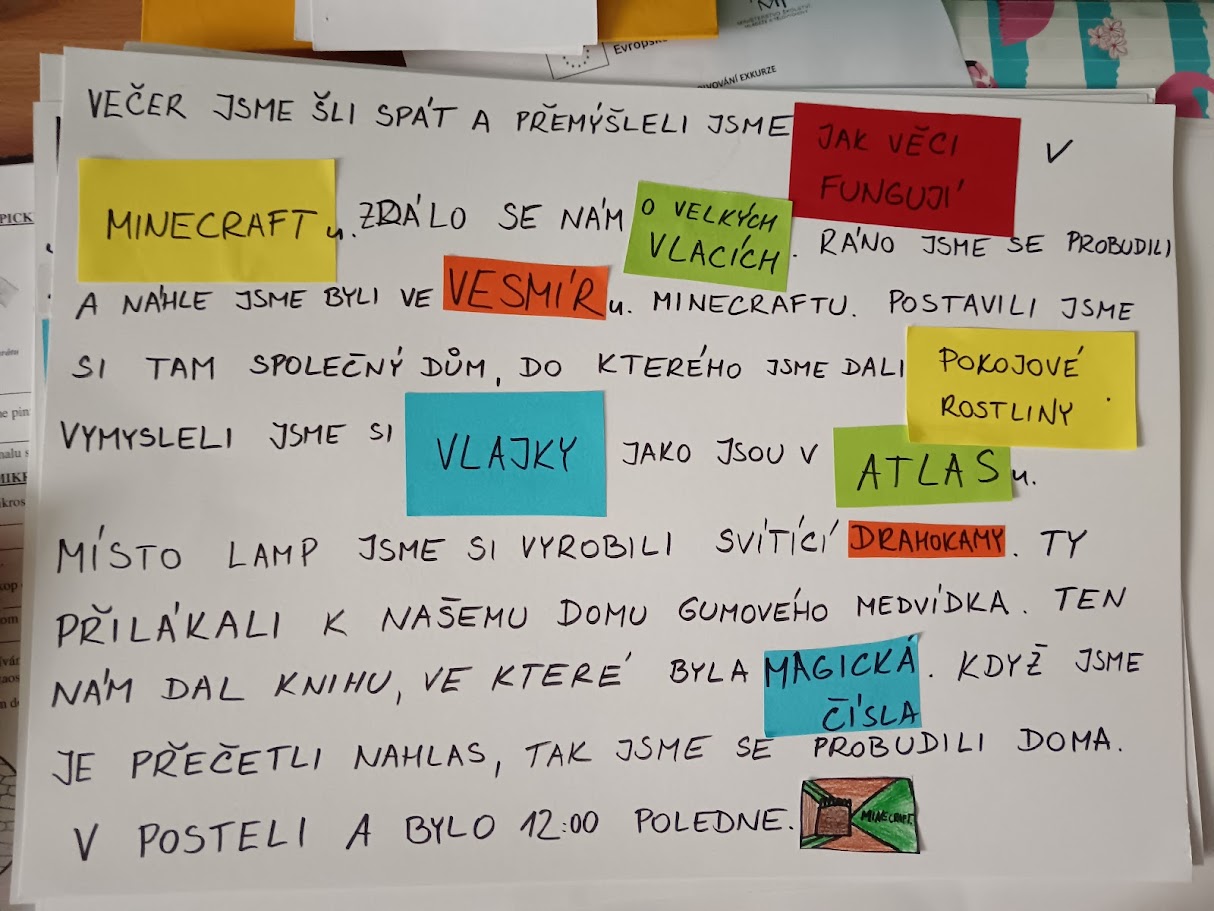 MINISTERSTVO ŠKOLSTVÍ
Evropsk
VOVÁNÍ EXKURZE
VEČER JSME ŠLI SPÁT A PŘEMÝŠLELI JSME JAK VĚCI FUNGUJÍ V
MINECRAFT u. ZDÁLO SE NÁM O VELKÝCH VLACÍCH. RÁNO JSME SE PROBUDILI
A NÁHLE JSME BYLI VE VESMÍR u. MINECRAFTU. POSTAVILI JSME
SI TAM SPOLEČNÝ DŮM, DO KTERÉHO JSME DALI POKOJOVÉ ROSTLINY.
VYMYSLELI JSME SI VLAJKY JAKO JSOU V ATLAS u.
MÍSTO LAMP JSME SI VYROBILI SVÍTÍCÍ DRAHOKAMY. TY
PŘILÁKALI K NAŠEMU DOMU GUMOVÉHO MEDVÍDKA. TEN
NÁM DAL KNIHU, VE KTERÉ BYLA MAGICKÁ ČÍSLA. KDYŽ JSME
JE PŘEČETLI NAHLAS, TAK JSME SE PROBUDILI DOMA.
V POSTELI A BYLO 12:00 POLEDNE. MINECRAFT